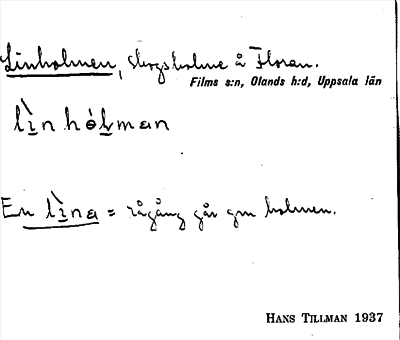 Linholmen, skogsholme å Floran.
Films s:n, Olands h:d, Uppsala län
lìnhólman
En lìna = rågång går gm holmen.
HANS TILLMAN 1937